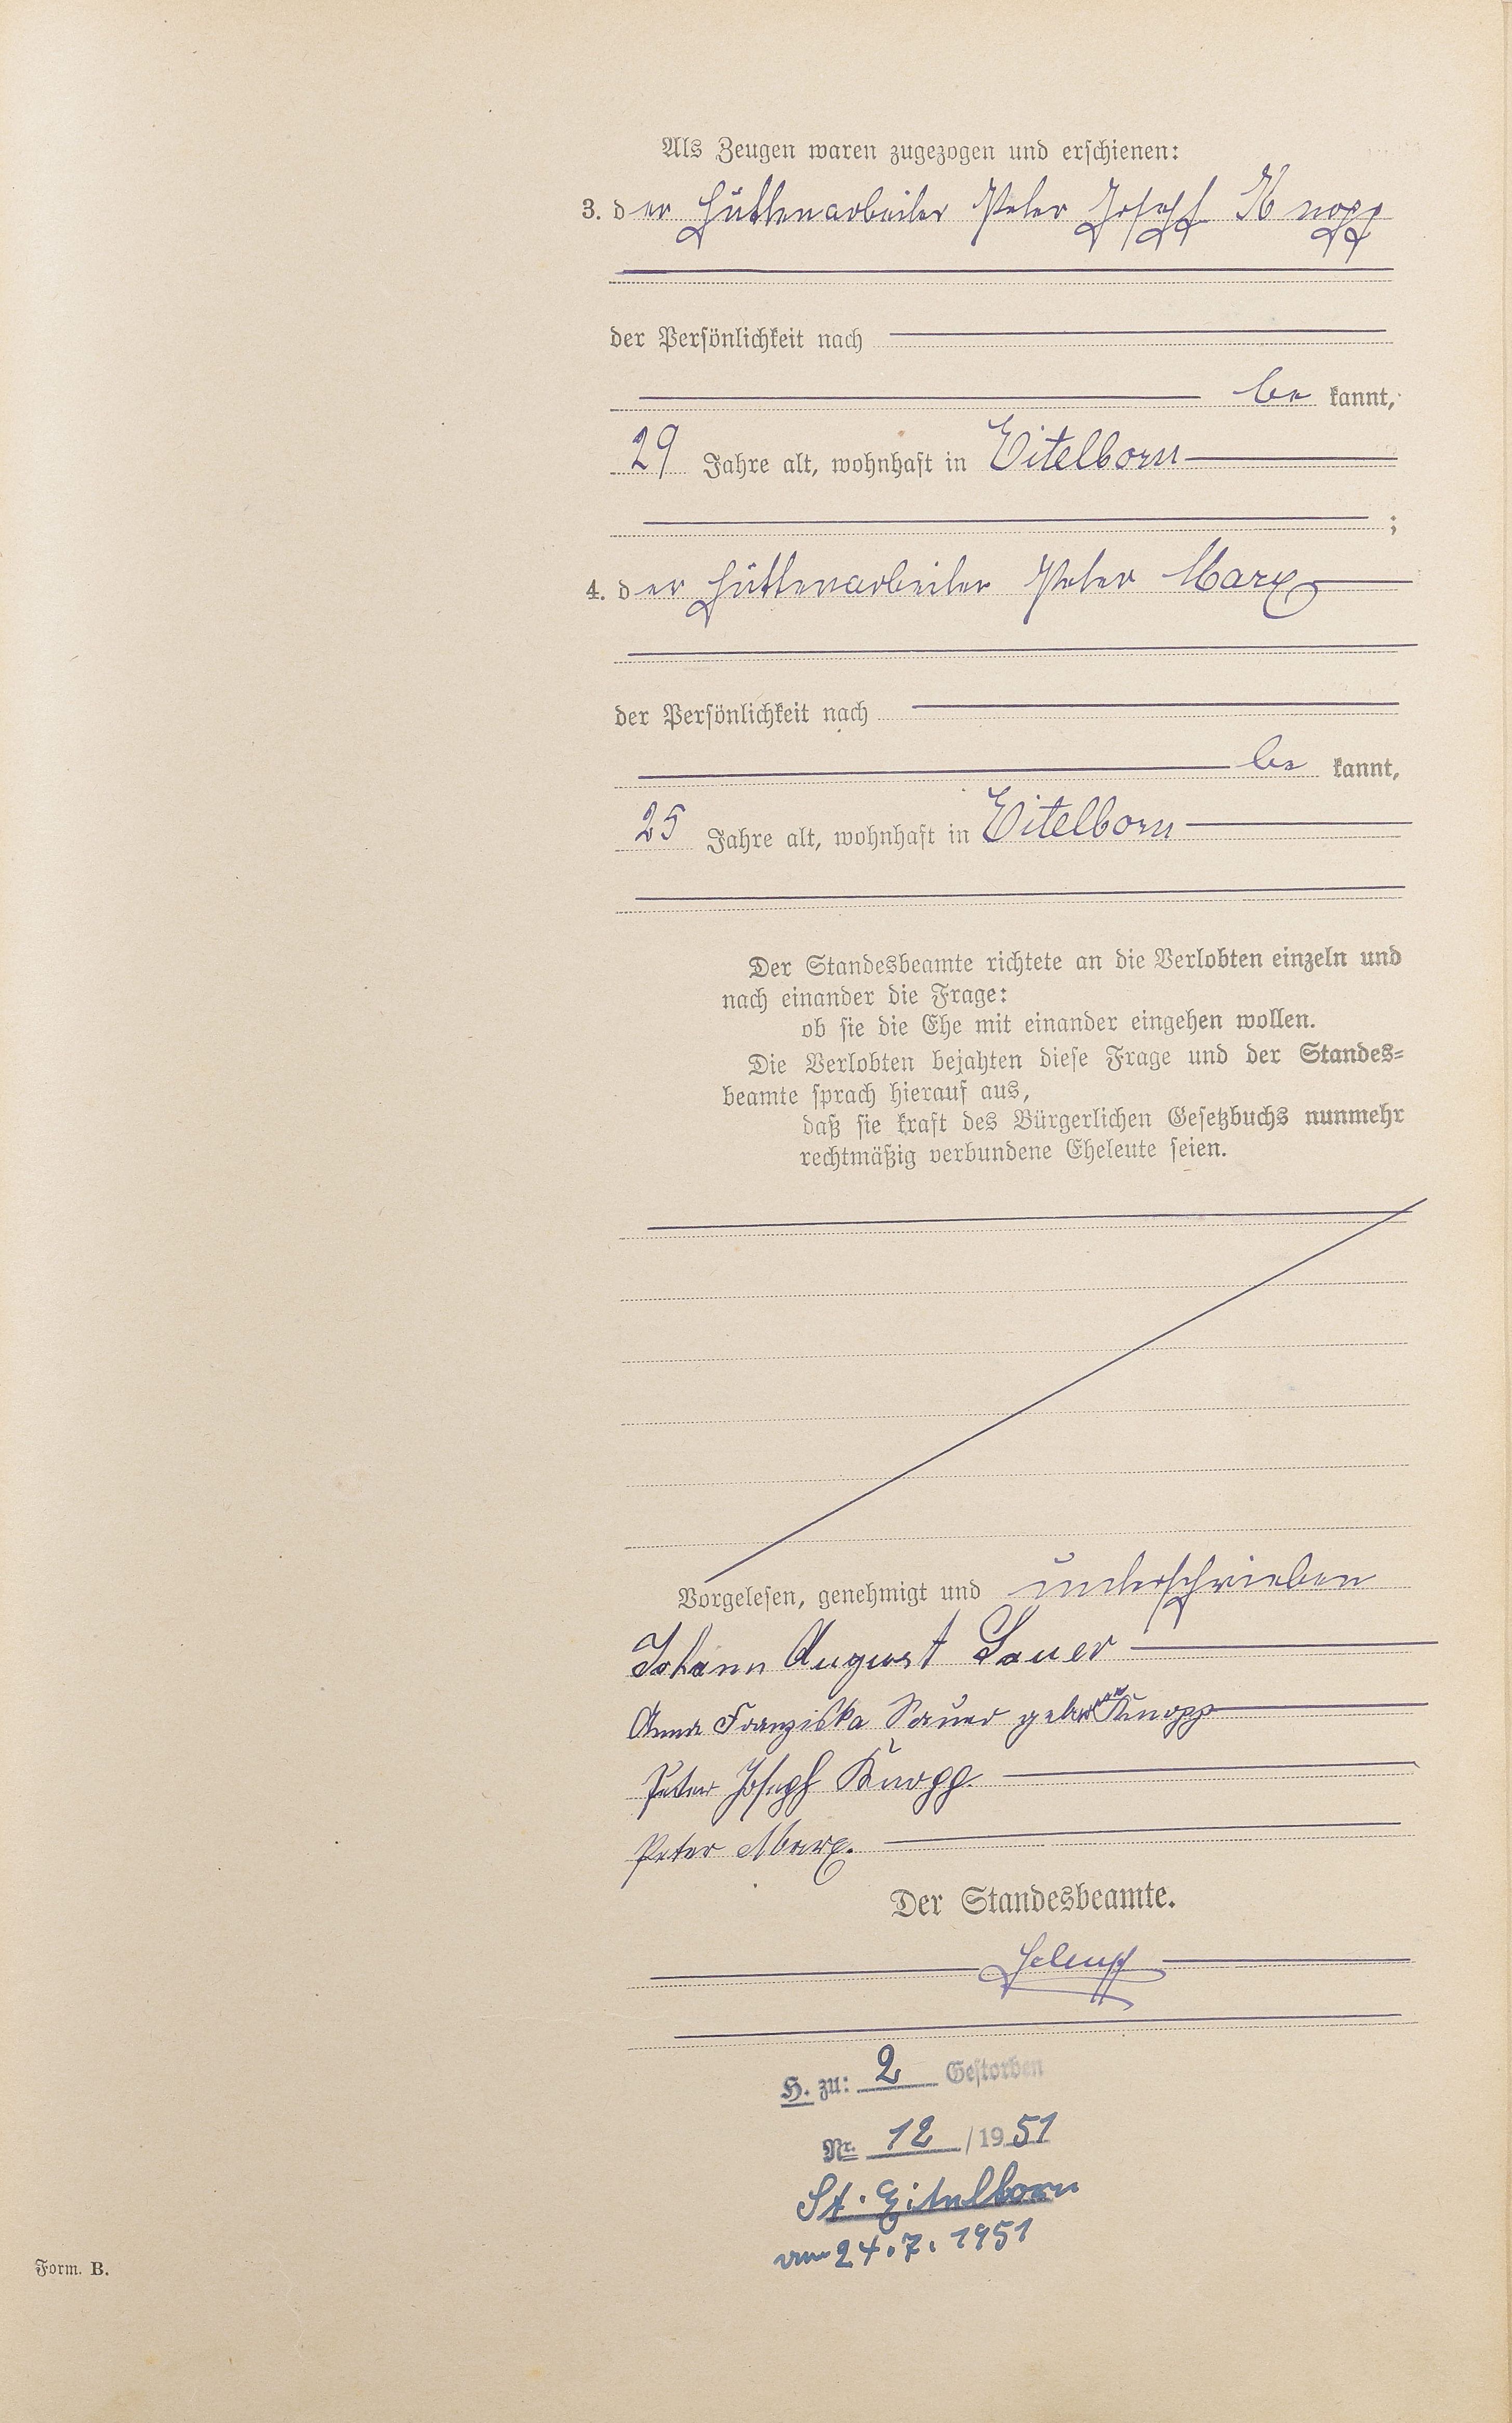 Als Zeugen waren zugezogen und erschienen:
3. der Hüttenarbeiter Peter Joseph Knopp
der Persönlichkeit nach
be kannt,
29 Jahre alt, wohnhaft in Eitelborn
;
4. der Hüttenarbeiter Peter Marx
der Persönlichkeit nach
be kannt,
25 Jahre alt, wohnhaft in Eitelborn
Der Standesbeamte richtete an die Verlobten einzeln und
nach einander die Frage:
ob sie die Ehe mit einander eingehen wollen.
Die Verlobten bejahten diese Frage und der Standes=
beamte sprach hierauf aus,
daß sie kraft des Bürgerlichen Gesetzbuchs nunmehr
rechtmäßig verbundene Eheleute seien.
Vorgelesen, genehmigt und unterschrieben
Johann August Sauer
Anna Franziska Sauer geborene Knopp
Peter Joseph Knopp.
Peter Marx.
Der Standesbeamte.
H. zu: 2 Gestorben
Nr. 12 / 1951
St. Eitelborn
vom 24.7.1951
Form. B.